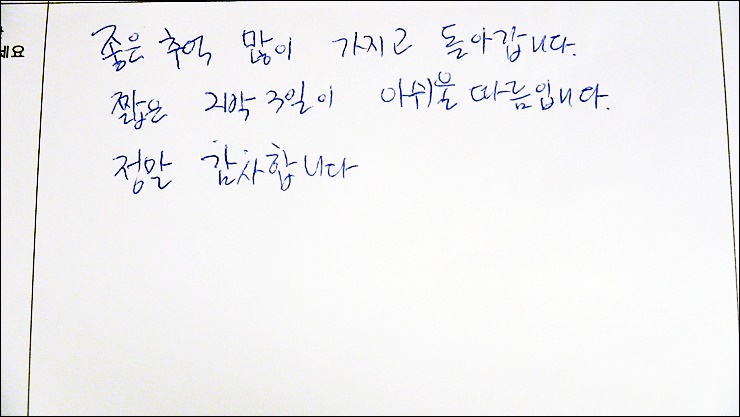 세요
좋은 추억 많이 가지고 돌아갑니다.
짧은 2박 3일이 아쉬울 따름입니다.
정말 감사합니다